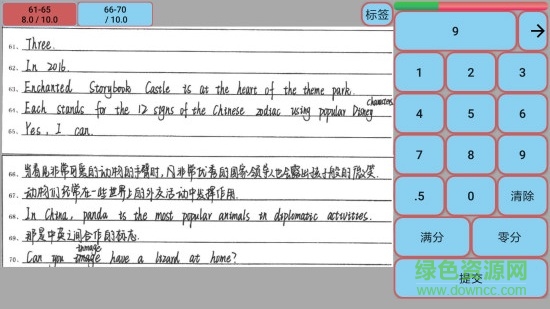 61-65
8.0 / 10.0
66-70
/ 10.0
标签
9
→
1 2 3
4 5 6
7 8 9
.5 0 清除
满分 零分
提交
61. Three.
62. In 2016.
63. Enchanted Storybook Castle is at the heart of the theme park.
64. Each stands for the 12 signs of the Chinese zodiac using popular Disney characters.
65. Yes, I can.
66. 当看见非常可爱的动物的手臂时,非常优秀的国家领导人也会露出孩子般的微笑.
67. 动物们经常在一些世界上的外交活动中发挥作用.
68. In China, panda is the most popular animals in diplomatic activities.
69. 那是中英之间合作的标志.
70. Can you image have a lizard at home?
绿色资源网
www.downcc.com